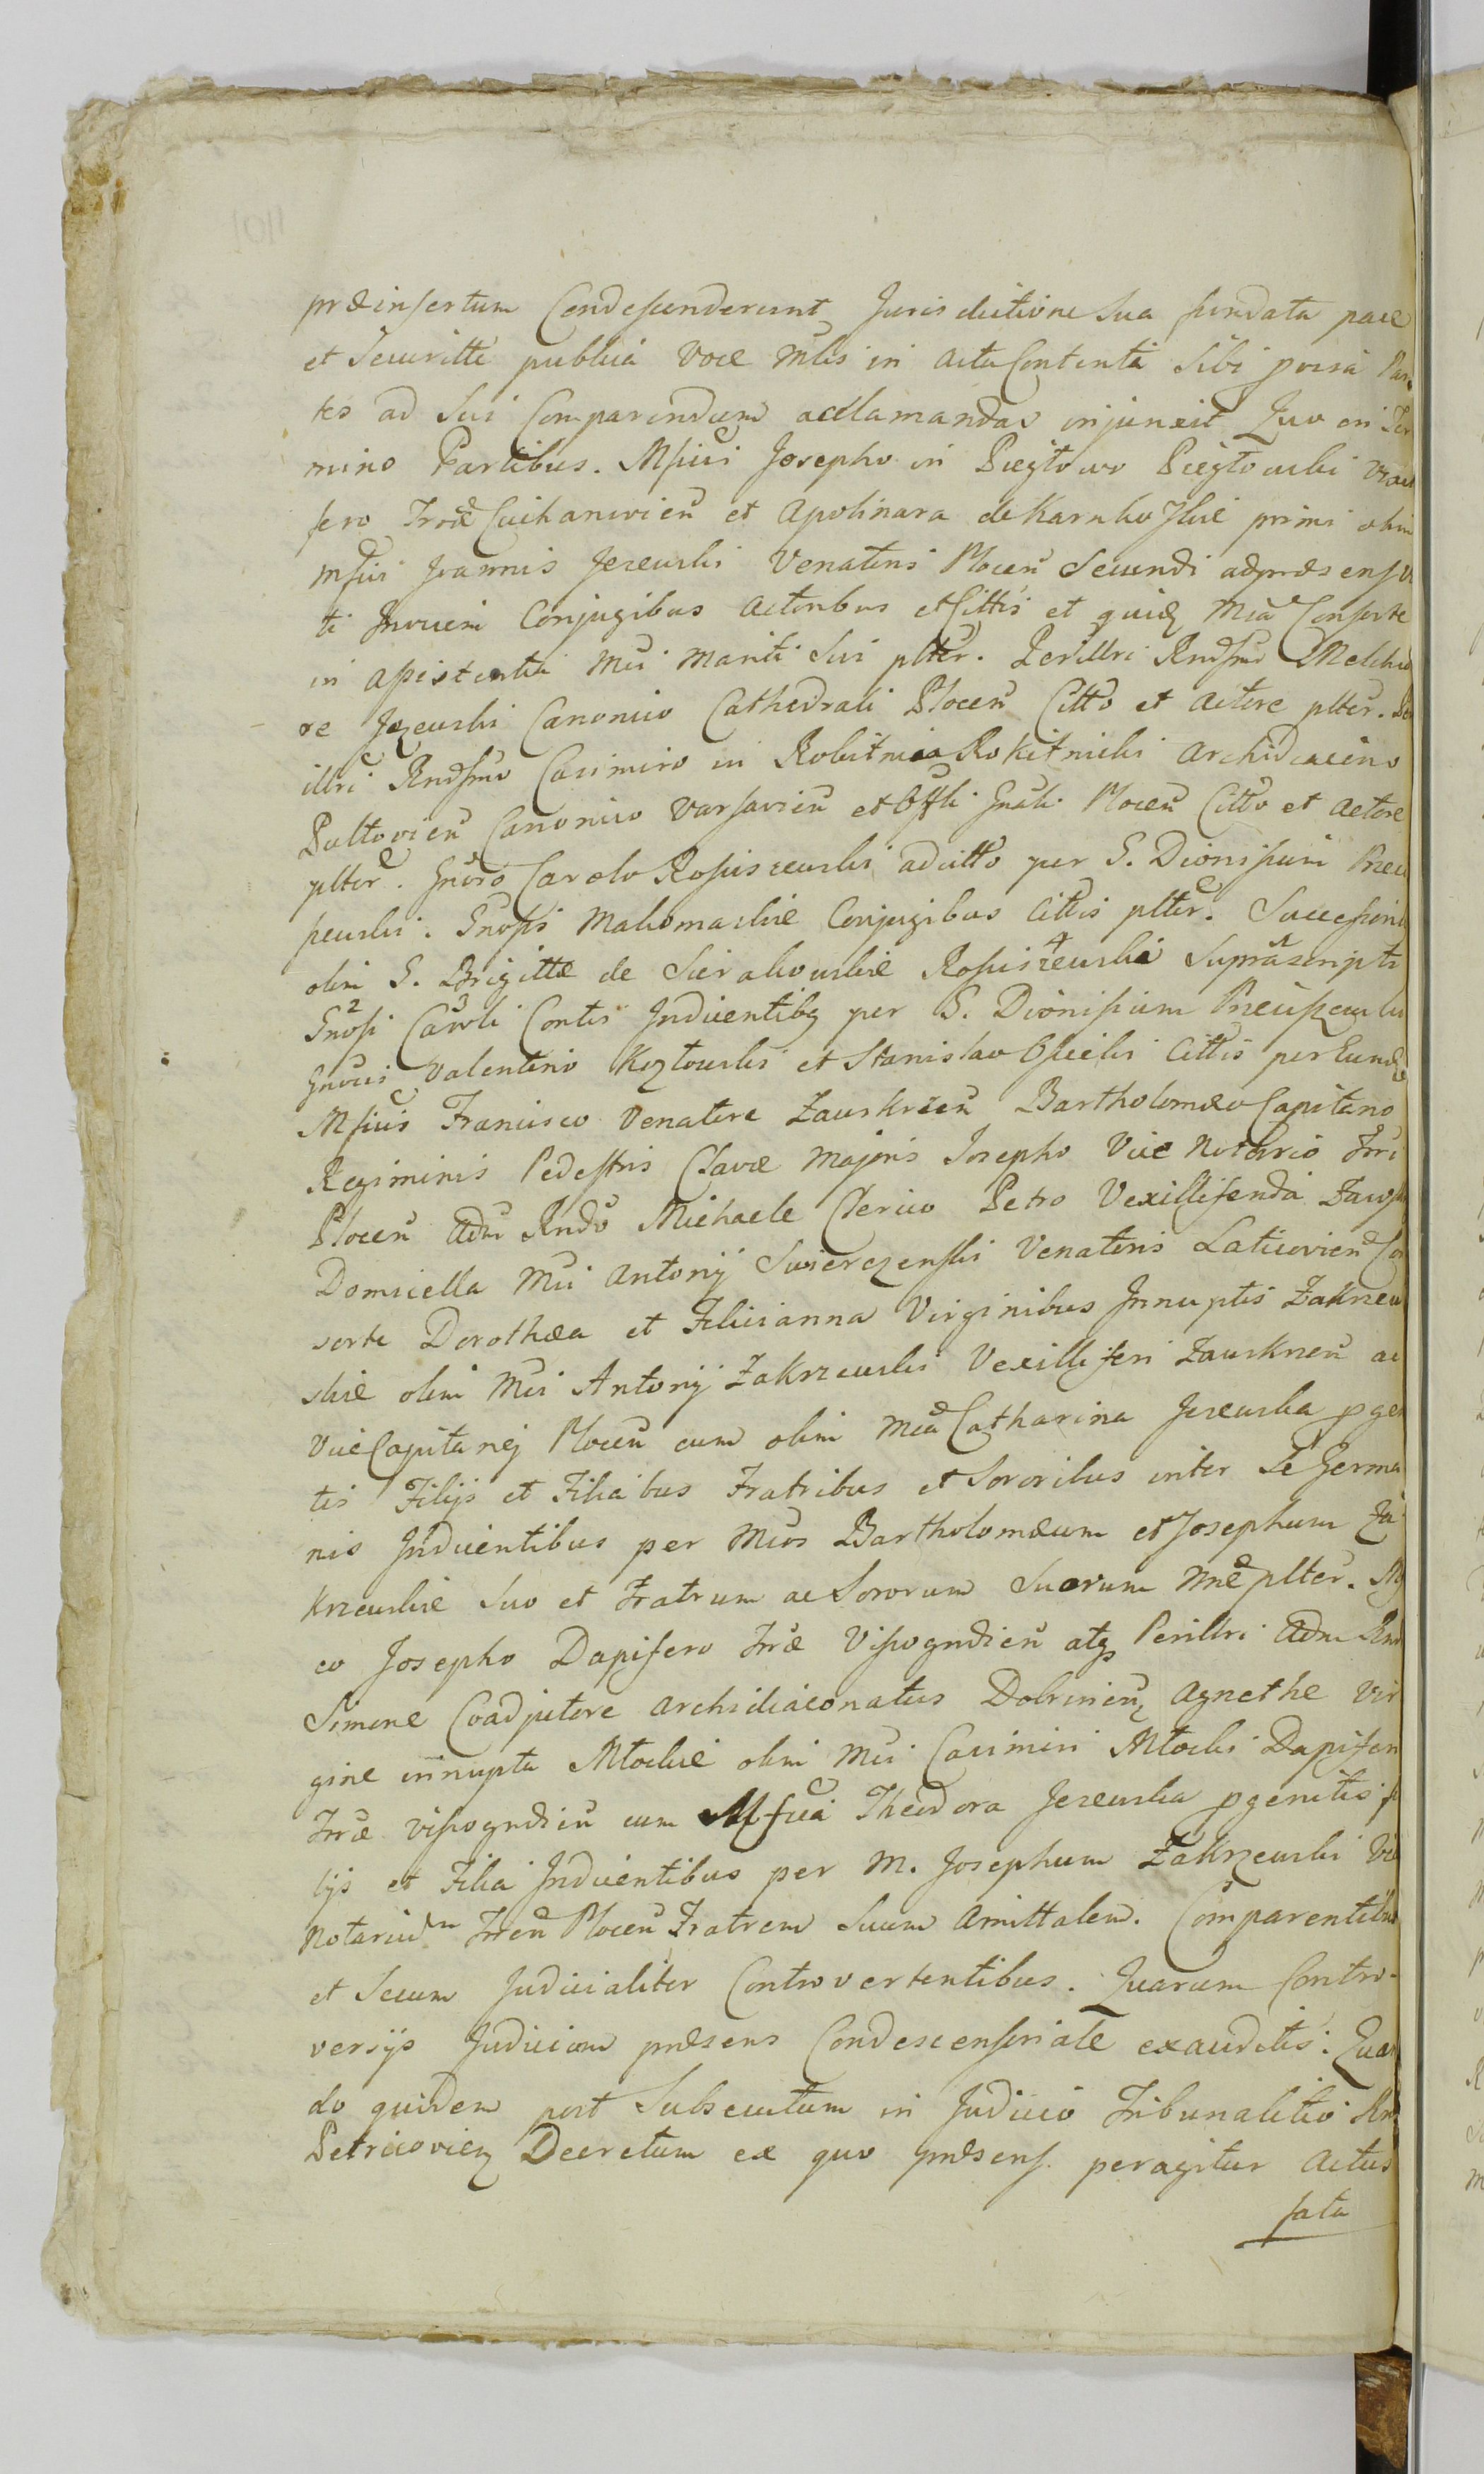 præinsertum Condescenderunt Jurisdictione Sua fundata pace
et Securitte publica voce Mlis in actu Contenta Sibi
tes ad Sui Comparendum acclamandas injunxit Quo in Ter
mino Partibus. Msici Josepho in Piegłowo Piegłowski
fero Trræ Ciechanovien et Apolinara de Karnkoskie primi olim
Msici Joannis Jezewski Venatoris Plocen Secundi ad præsens V
ti Invicem Conjugibus Actoribus et Cittis et quidq Mca Consorte
in assistentia Mci Mariti Sui plter. Perillri Rndsmo Melchio
re Jezewski Canonico Cathedrali Plocen Citto et Actore plter. Per
illri Rndsmo Casimiro in Rokitnica Rokitnicki Archidiacono
Pultovien Canonico Varsavien et Offli Gnali Plocen Citto et Actore
plter. Gnoso Carolo Rościszewski adcitto per G. Dionisium Przeci
szewski. Gnosis Makomaskie Conjugibus Cittis plter. Successoribu
olim G. Brigittæ de Sierakowskie Rościszewska 4 Suprascripti 1
Gnosi 2 Caroli 3 Contis Inducentibq per G. Dionisium Przeciszewski
Gnosis Valentino Kozłowski et Stanislao Osiecki Cittis per Eundem
Msicis Francisco Venatore Zawskrzen Bartholomæo Capitano
Regiminis Pedestris Clavæ Majoris Josepho Vice Notario Trri
Plocen Adm Rndo Michaele Clerico Petro Vexilliferida Zawsk
Domicella Mci Antonij Swierczenski Venatoris Laticovien Con
sorte Dorothea et Felicianna Virginibus Innuptis Zakrzew
skie olim Mci Antonij Zakrzewski Vexilliferi Zawskrzen ac
ViceCapitanej Plocen cum olim Mca Catharina Jezewska pgeni
tis Filijs et Filiabus Fratribus et Sororibus inter Se Germa
nis Inducentibus per Mcos Bartholomæum et Josephum Za
krzewskie Suo et Fratrum ac Sororum Suarum Nne plter. M
co Josepho Dapifero Trræ Vissogrdien atq Perillri Adm Rndo
Simone Coadjutore Archidiaconatus Dobrinien Agnethe Vir
gine innupta Młockie olim Mci Casimiri Młocki Dapiferi
Trræ Vissogrdien cum Msica Theodora Jezewska pgenitis fi
lijs et Filia Inducentibus per M. Josephum Zakrzewski Vic
Notarium Trren Plocen Fratrem Suum Amittalem. Comparentibus
et Secum Judicialiter Controvertentibus. Quarum Contro-
versijs Judicium præsens Condescensoriale exauditis: Quan
do quidem post Subsecutum in Judicio Tribunalitio Rni
Petricovien Decretum ex quo præsens peragitur Actus
fata